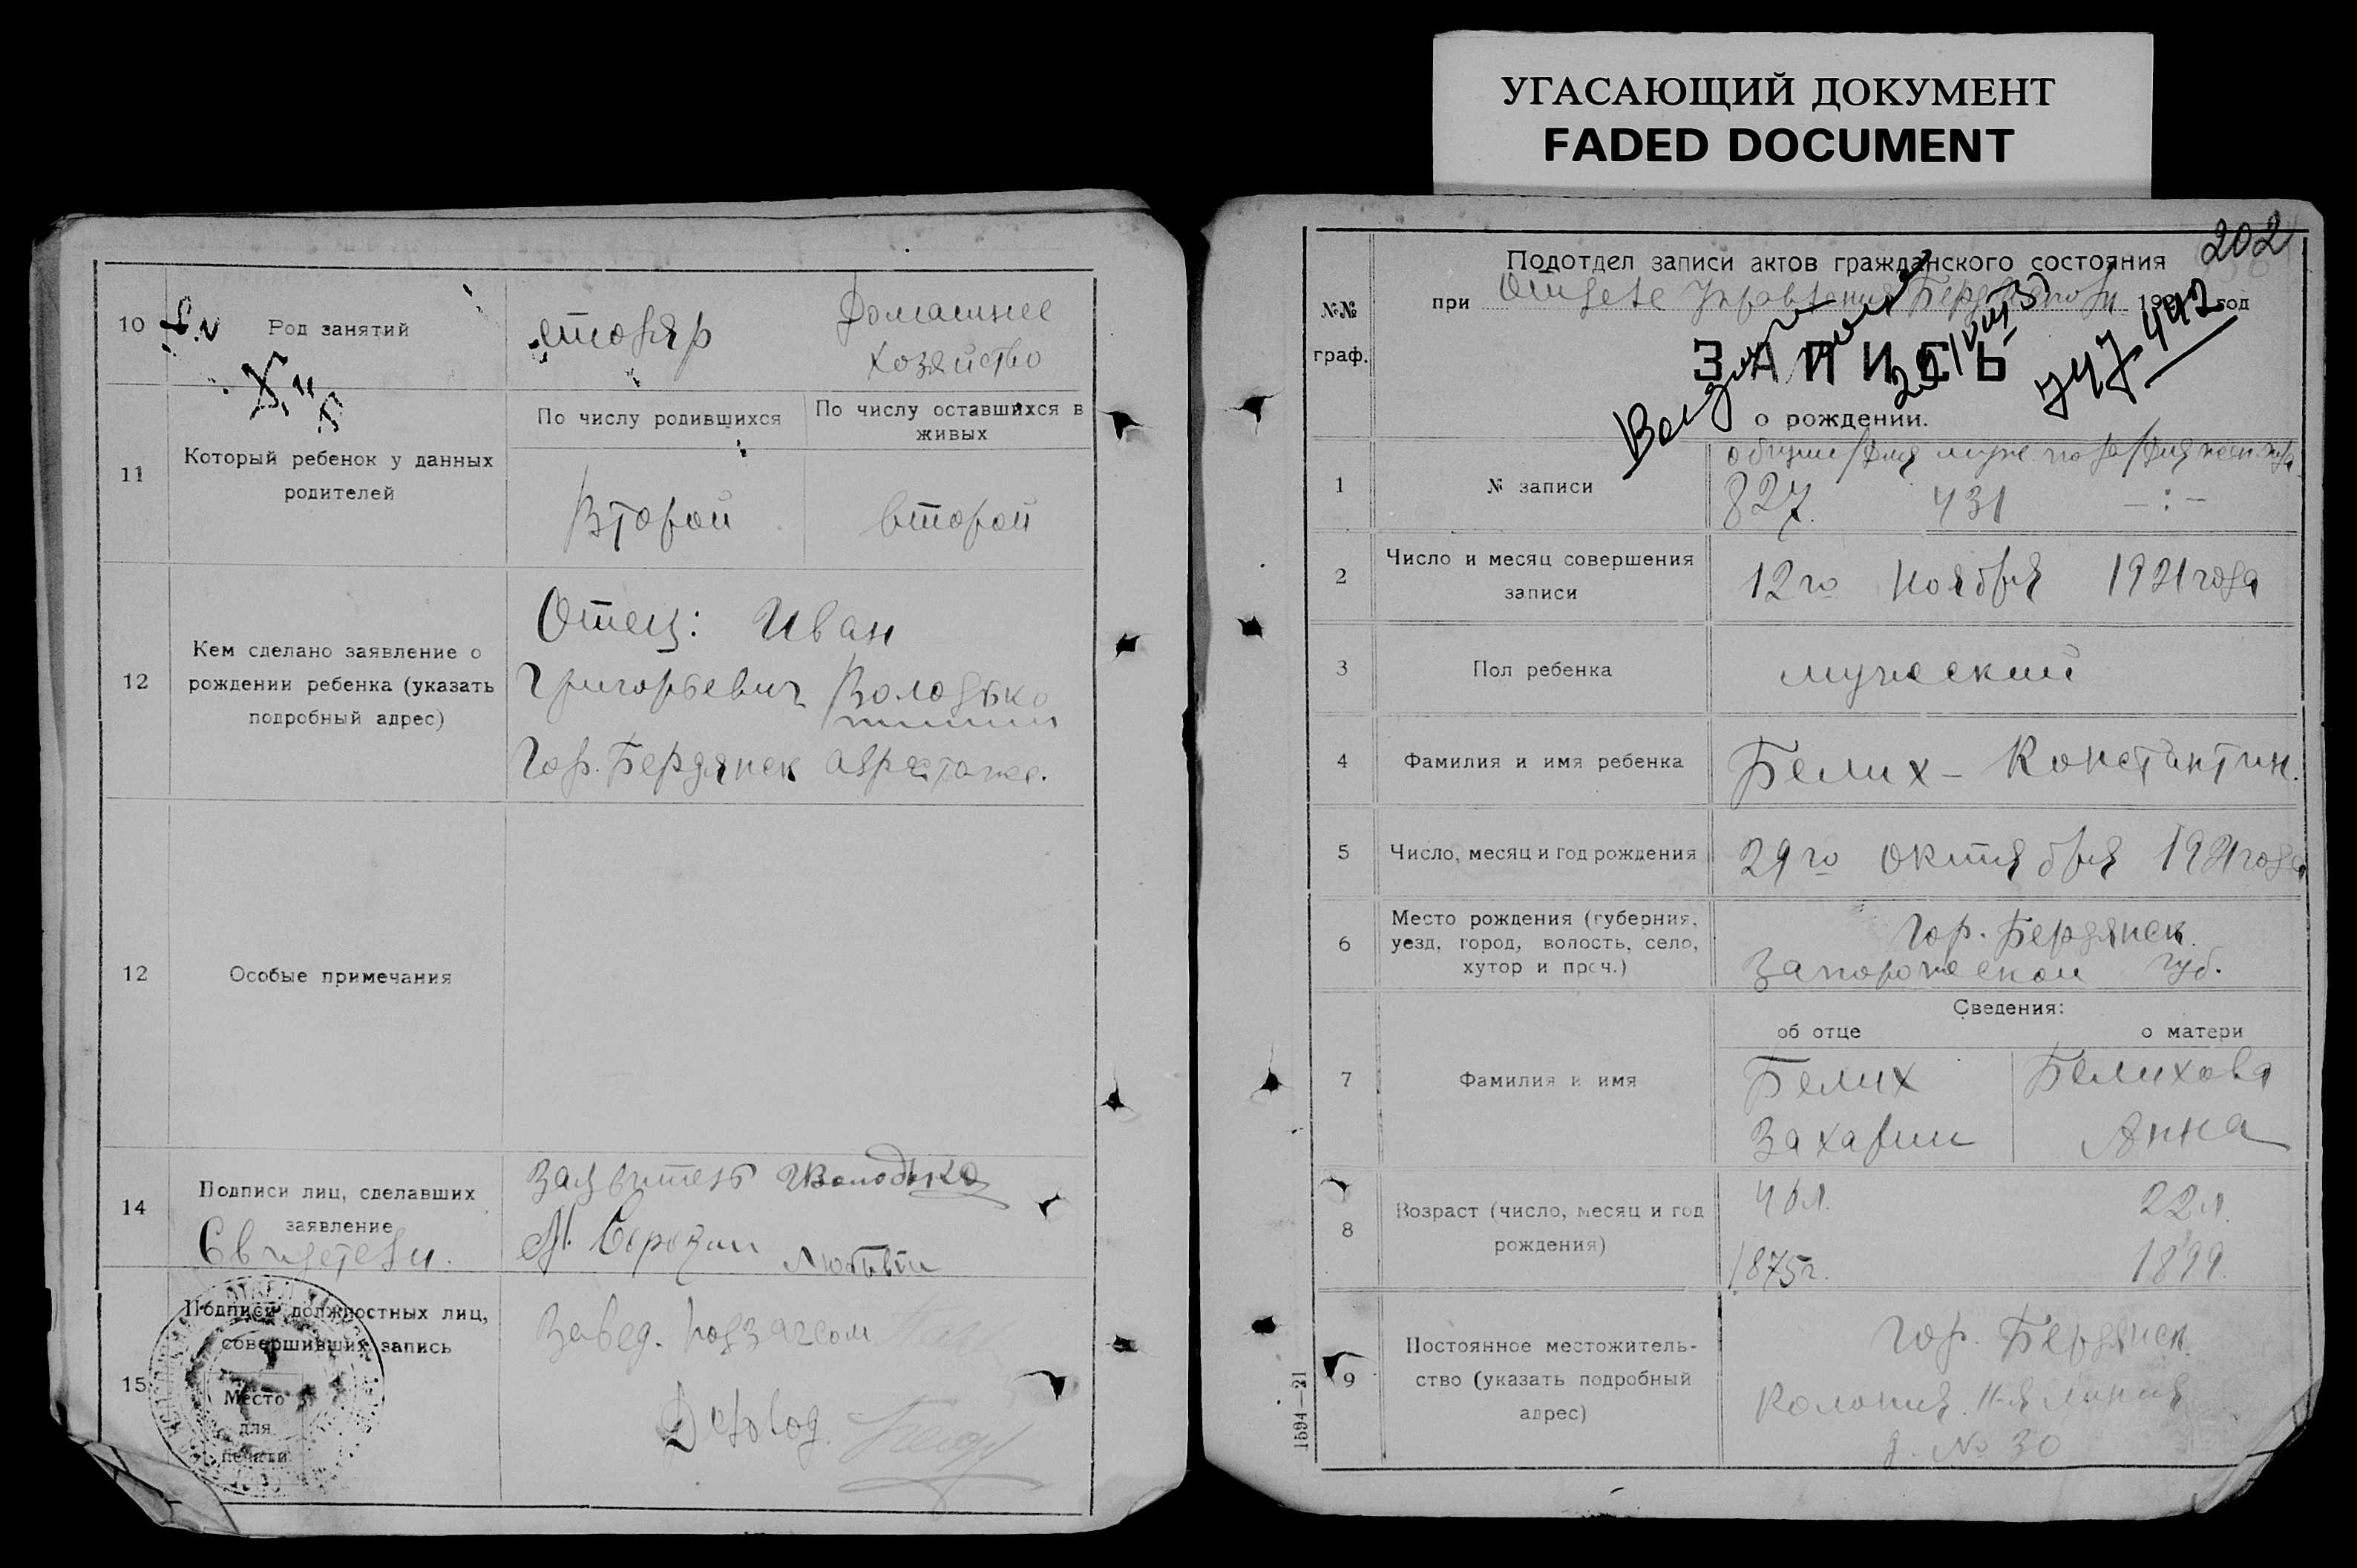 УГАСАЮЩИЙ ДОКУМЕНТ
FADED DOCUMENT
10
Род занятий
столяр
Домашнее
хозяйство
11
Который ребенок у данных
родителей
По числу родившихся
По числу оставшихся в
живых
Второй
второй
12
Кем сделано заявление о
рождении ребенка (указать
подробный адрес)
Отец: Иван
Григорьевич Володько
Гор. Бердянск адрес тоже.
12
Особые примечания
14
Подписи лиц, сделавших
заявление
Свидетели.
Заявитель ИВолодько
15
Подписи должностных лиц,
совершивших запись
Место
для
печати
Завед. подзагсом
Деловод.
202
№№
граф.
Подотдел записи актов гражданского состояния
при Отделе Управления год
747442
ЗАПИСЬ
о рождении.
1
№ записи
827. 431 —:—
2
Число и месяц совершения
записи
12го Ноября 1921 года
3
Пол ребенка
мужеский
4
Фамилия и имя ребенка
Белих – Константин.
5
Число, месяц и год рождения
29го октября 1921 года
6
Место рождения (губерния,
уезд, город, волость, село,
хутор и проч.)
Гор. Бердянск.
Запорожской губ.
Сведения:
об отце
о матери
7
Фамилия и имя
Белих
Захарий
Белихова
Анна
8
Возраст (число, месяц и год
рождения)
46л.
1875г.
22л.
1899.
9
Постоянное местожитель-
ство (указать подробный
адрес)
Гор. Бердянск.
Колония. 11-я линия
д. № 30
1594—21